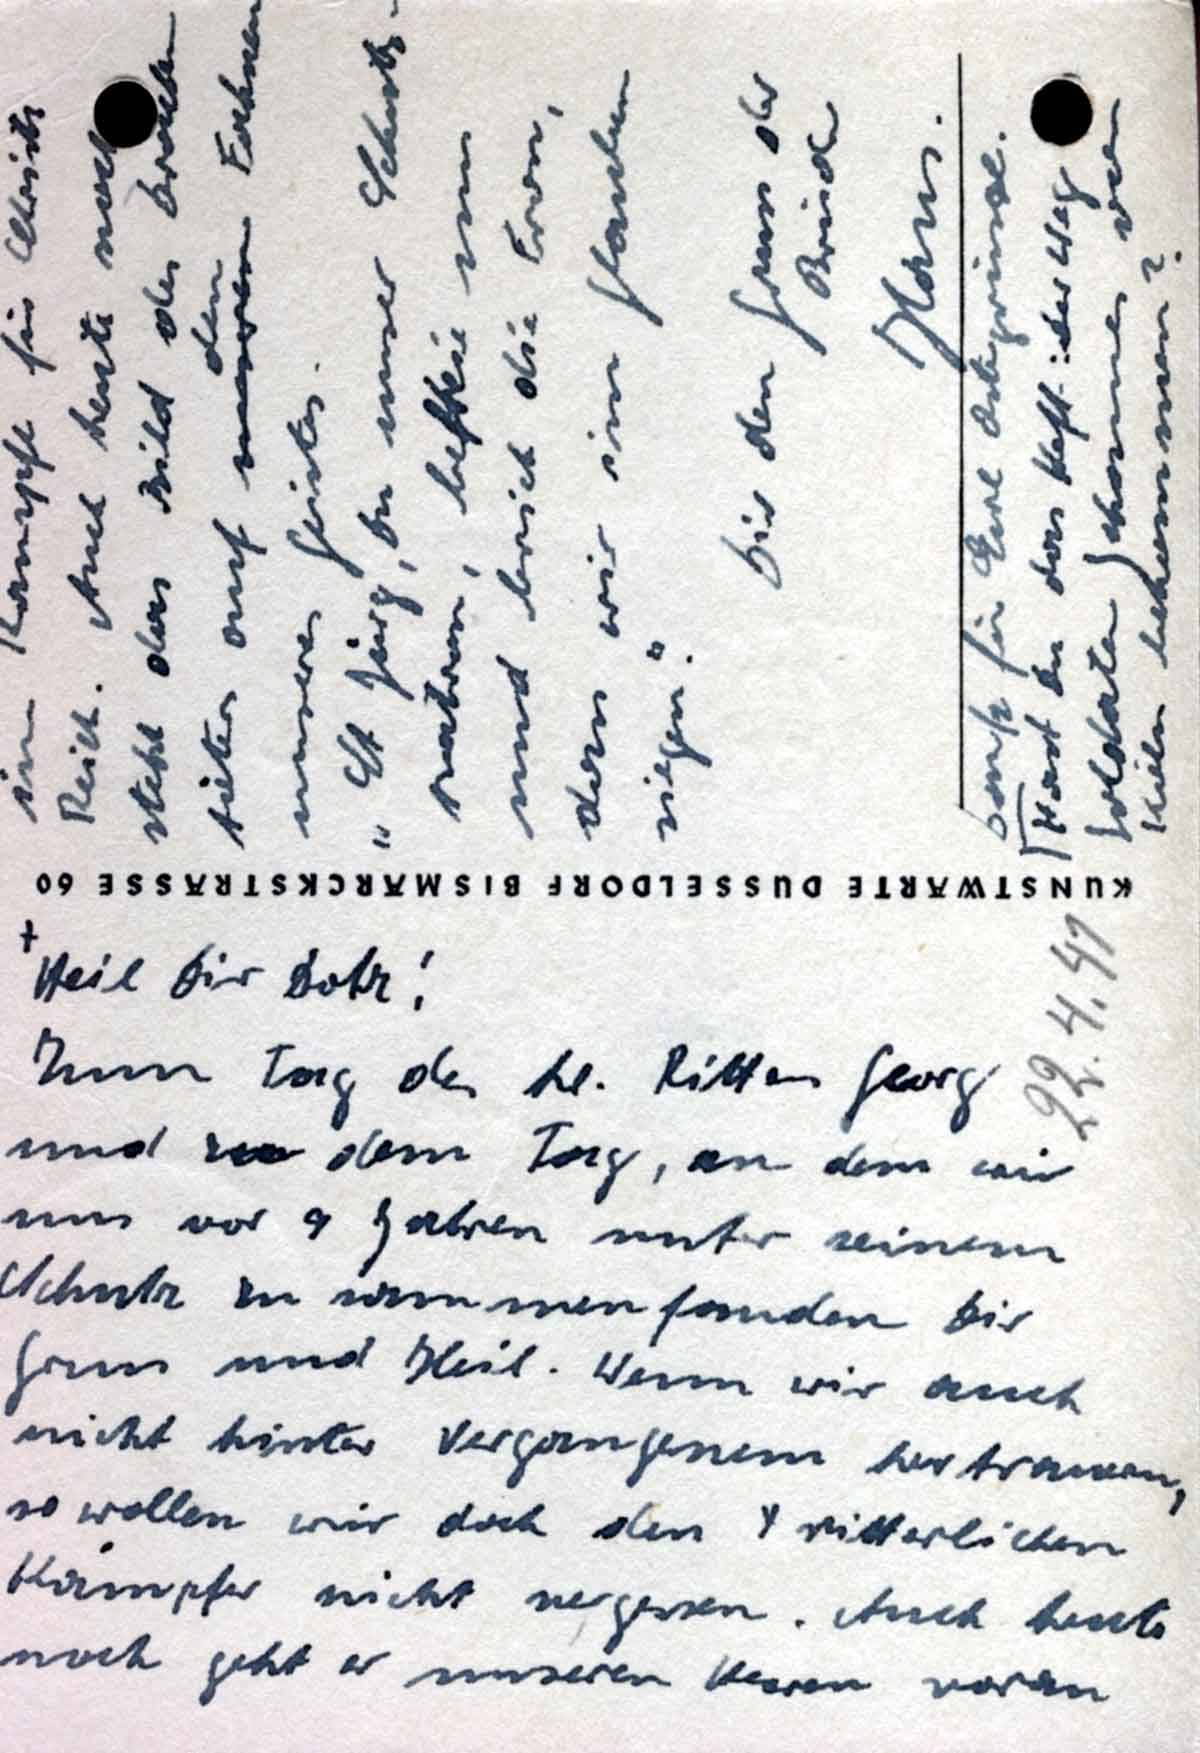 +
Heil Dir Dohr!
22.4.41
Zum Tag des hl. Ritters Georg
und dem Tag, an dem wir
uns vor 9 Jahren unter seinem
Schutz zusammenfanden Dir
Gruss und Heil. Wenn wir auch
nicht hinter Vergangenem hertrauern,
so wollen wir doch den ritterlichen
Kämpfer nicht vergessen. Auch heute
noch geht er unseren Heeren voran
KUNSTWARTE DÜSSELDORF BISMARCKSTRASSE 60
im Kampfe für Christi
Reich. Auch heute noch
steht das Bild des Drachen
töters auf den Fahnen
unseres Geistes.
" St Jürg, Du unser Schutz-
patron, befreie uns
und brich die Fron,
dass wir im Glauben
siegen."
Dir den Gruss der
Brüder
Hans.
Dank für Eure Ostergrüsse.
Hast Du das Heft: der Weg
des Soldaten Johannes von
Kiem bekommen?